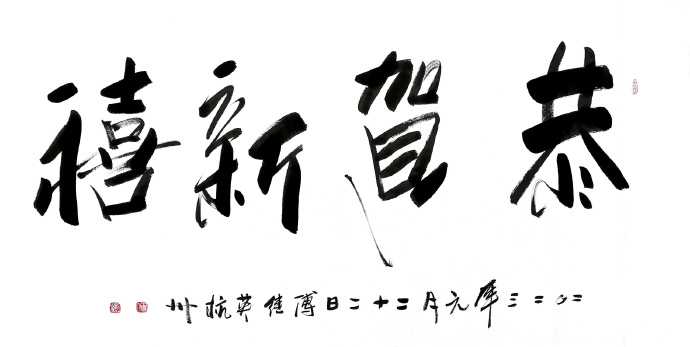 恭賀新禧
二〇二三年元月二十二日傅佳英杭州